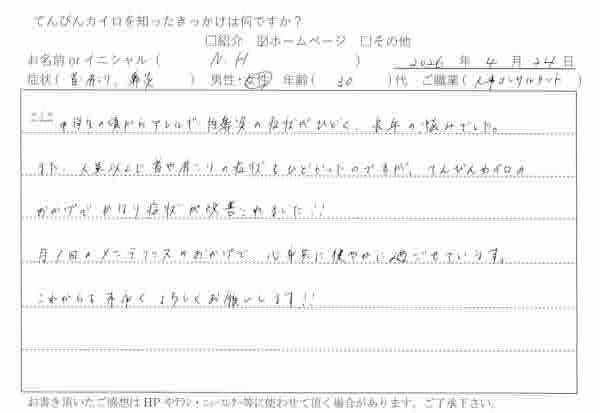 てんびんカイロを知ったきっかけは何ですか？
□紹介 ☑ホームページ □その他
お名前 or イニシャル（ N.H ） 2026 年 4 月 24 日
症状（ 首肩こり、鼻炎 ） 男性・女性 年齢（ 30 ）代 ご職業（ 人事コンサルタント ）
中学生の頃からアレルギー性鼻炎の症状がひどく、長年の悩みでした。
また、人一倍以上に首や肩こりの症状もひどかったのですが、てんびんカイロの
おかげでかなり症状が改善されました!!
月1回のメンテナンスのおかげで、心身共に健やかに過ごせています。
これからも末永くよろしくお願いします!!
お書き頂いたご感想は HP やチラシ・ニュースレター等に使わせて頂く場合があります。ご了承下さい。